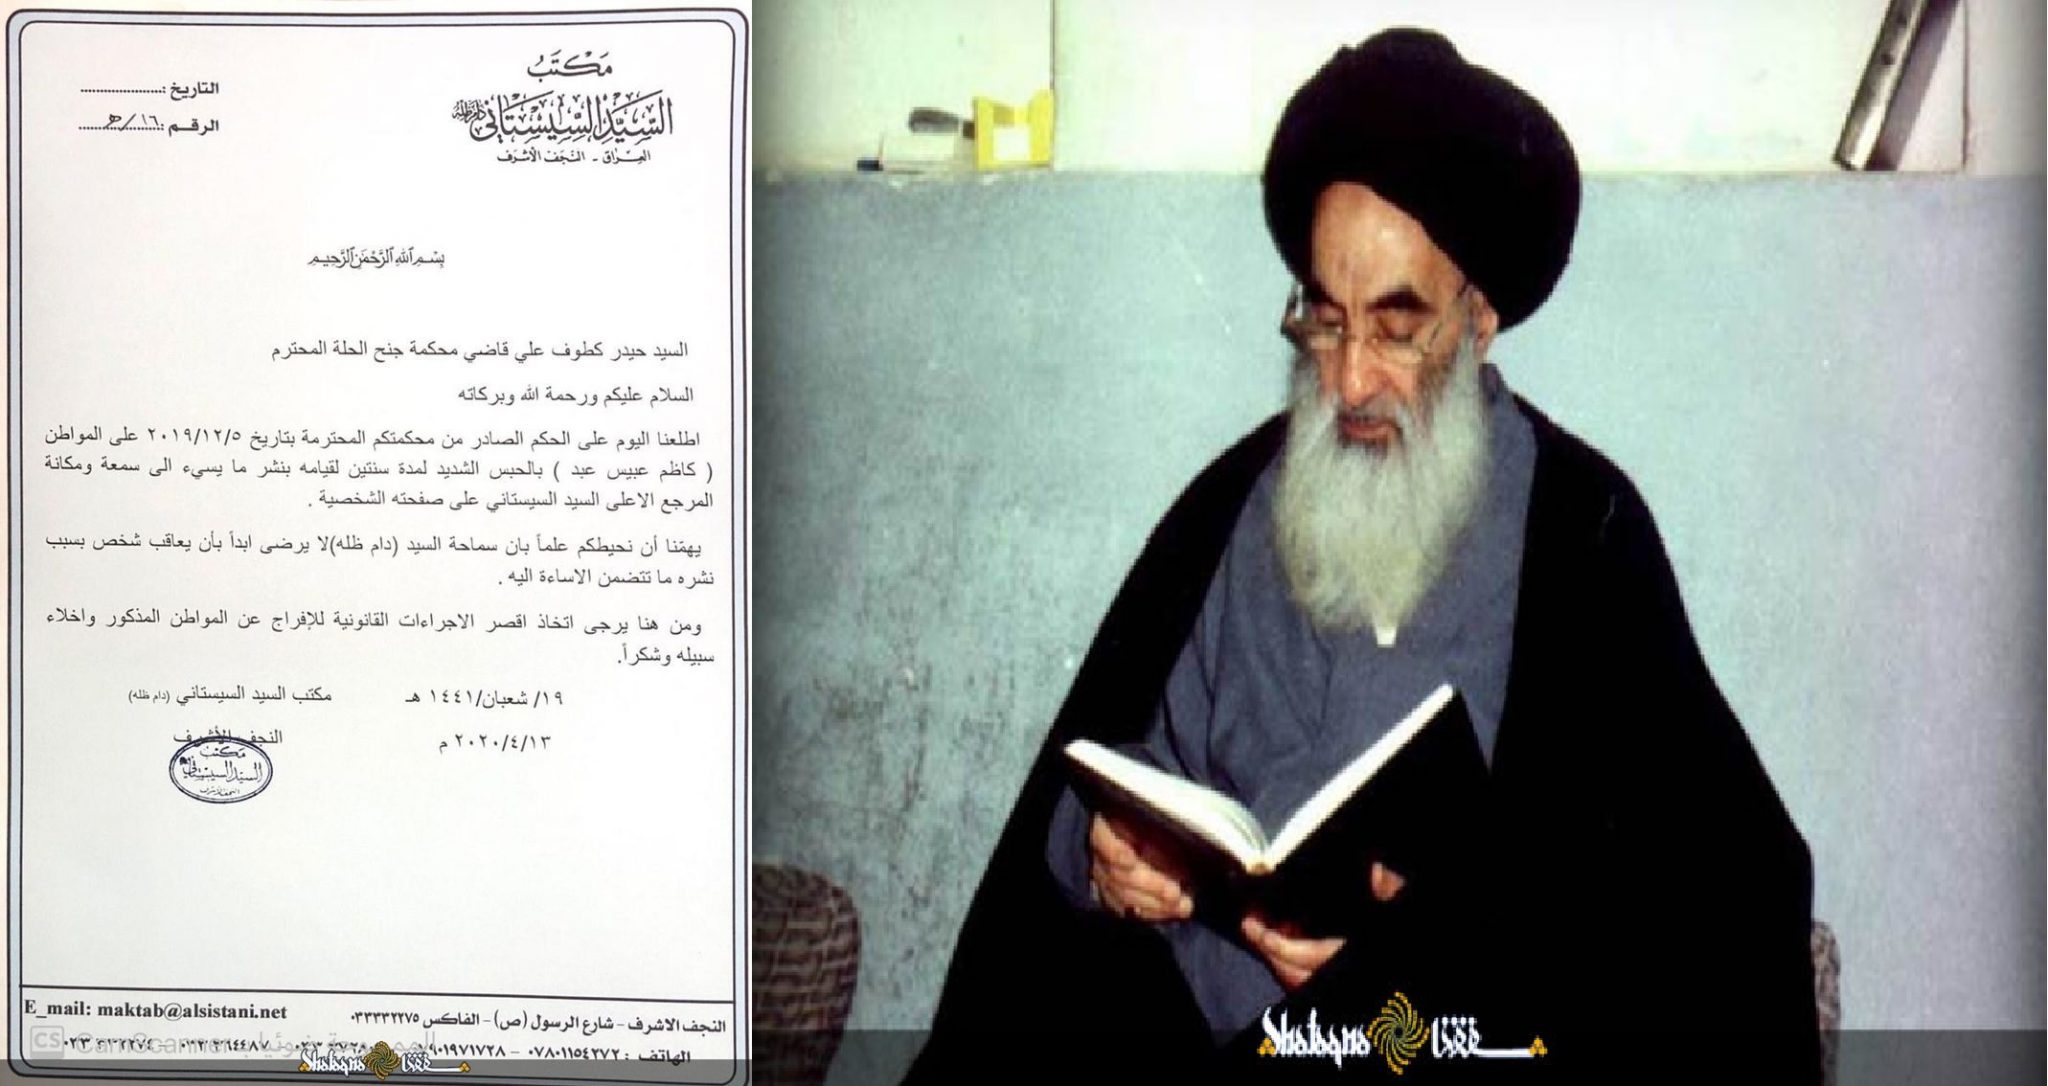 مكتب
السيد السيستاني دام ظله
العراق - النجف الأشرف
التاريخ :......................
الرقم :......١٦/هـ......
بسم الله الرحمن الرحيم
السيد حيدر كطوف علي قاضي محكمة جنح الحلة المحترم
السلام عليكم ورحمة الله وبركاته
اطلعنا اليوم على الحكم الصادر من محكمتكم المحترمة بتاريخ ٢٠١٩/١٢/٥ على المواطن
( كاظم عبيس عبد ) بالحبس الشديد لمدة سنتين لقيامه بنشر ما يسيء الى سمعة ومكانة
المرجع الاعلى السيد السيستاني على صفحته الشخصية .
يهمّنا أن نحيطكم علماً بان سماحة السيد (دام ظله)لا يرضى ابداً بأن يعاقب شخص بسبب
نشره ما تتضمن الاساءة اليه .
ومن هنا يرجى اتخاذ اقصر الاجراءات القانونية للإفراج عن المواطن المذكور واخلاء
سبيله وشكراً.
١٩/ شعبان/١٤٤١ هـ
مكتب السيد السيستاني (دام ظله)
٢٠٢٠/٤/١٣ م
النجف الأشرف
مكتب
السيد السيستاني
النجف الأشرف
النجف الاشرف – شارع الرسول (ص) – الفاكس ٠٣٣٣٣٢٢٧٥
E_mail: maktab@alsistani.net
الهاتف : ٠٧٨٠١١٥٤٢٧٢ –
CS CamScanner الممسوحة ضوئيا بـ
Shafaqna شفقنا
Shafaqna شفقنا